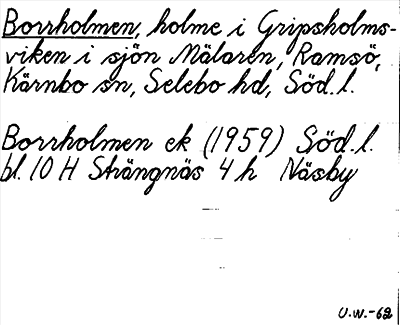 Borrholmen, holme i Gripsholms-
viken i sjön Mälaren, Ramsö,
Kärnbo sn, Selebo hd, Söd. l.
Borrholmen ek (1959) Söd. l.
bl. 10 H Strängnäs 4 h Näsby
U.W.-62